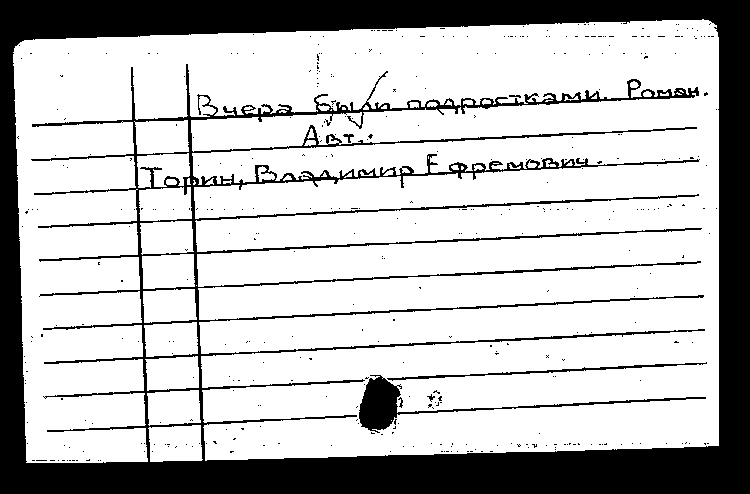 Вчера были подростками. Роман.
Авт.:
Торин, Владимир Ефремович.